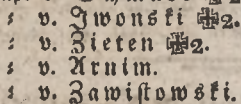 ⸗ v. Iwonski ✠2.
⸗ v. Zieten ✠2.
⸗ v. Arnim.
⸗ v. Zawistowski.